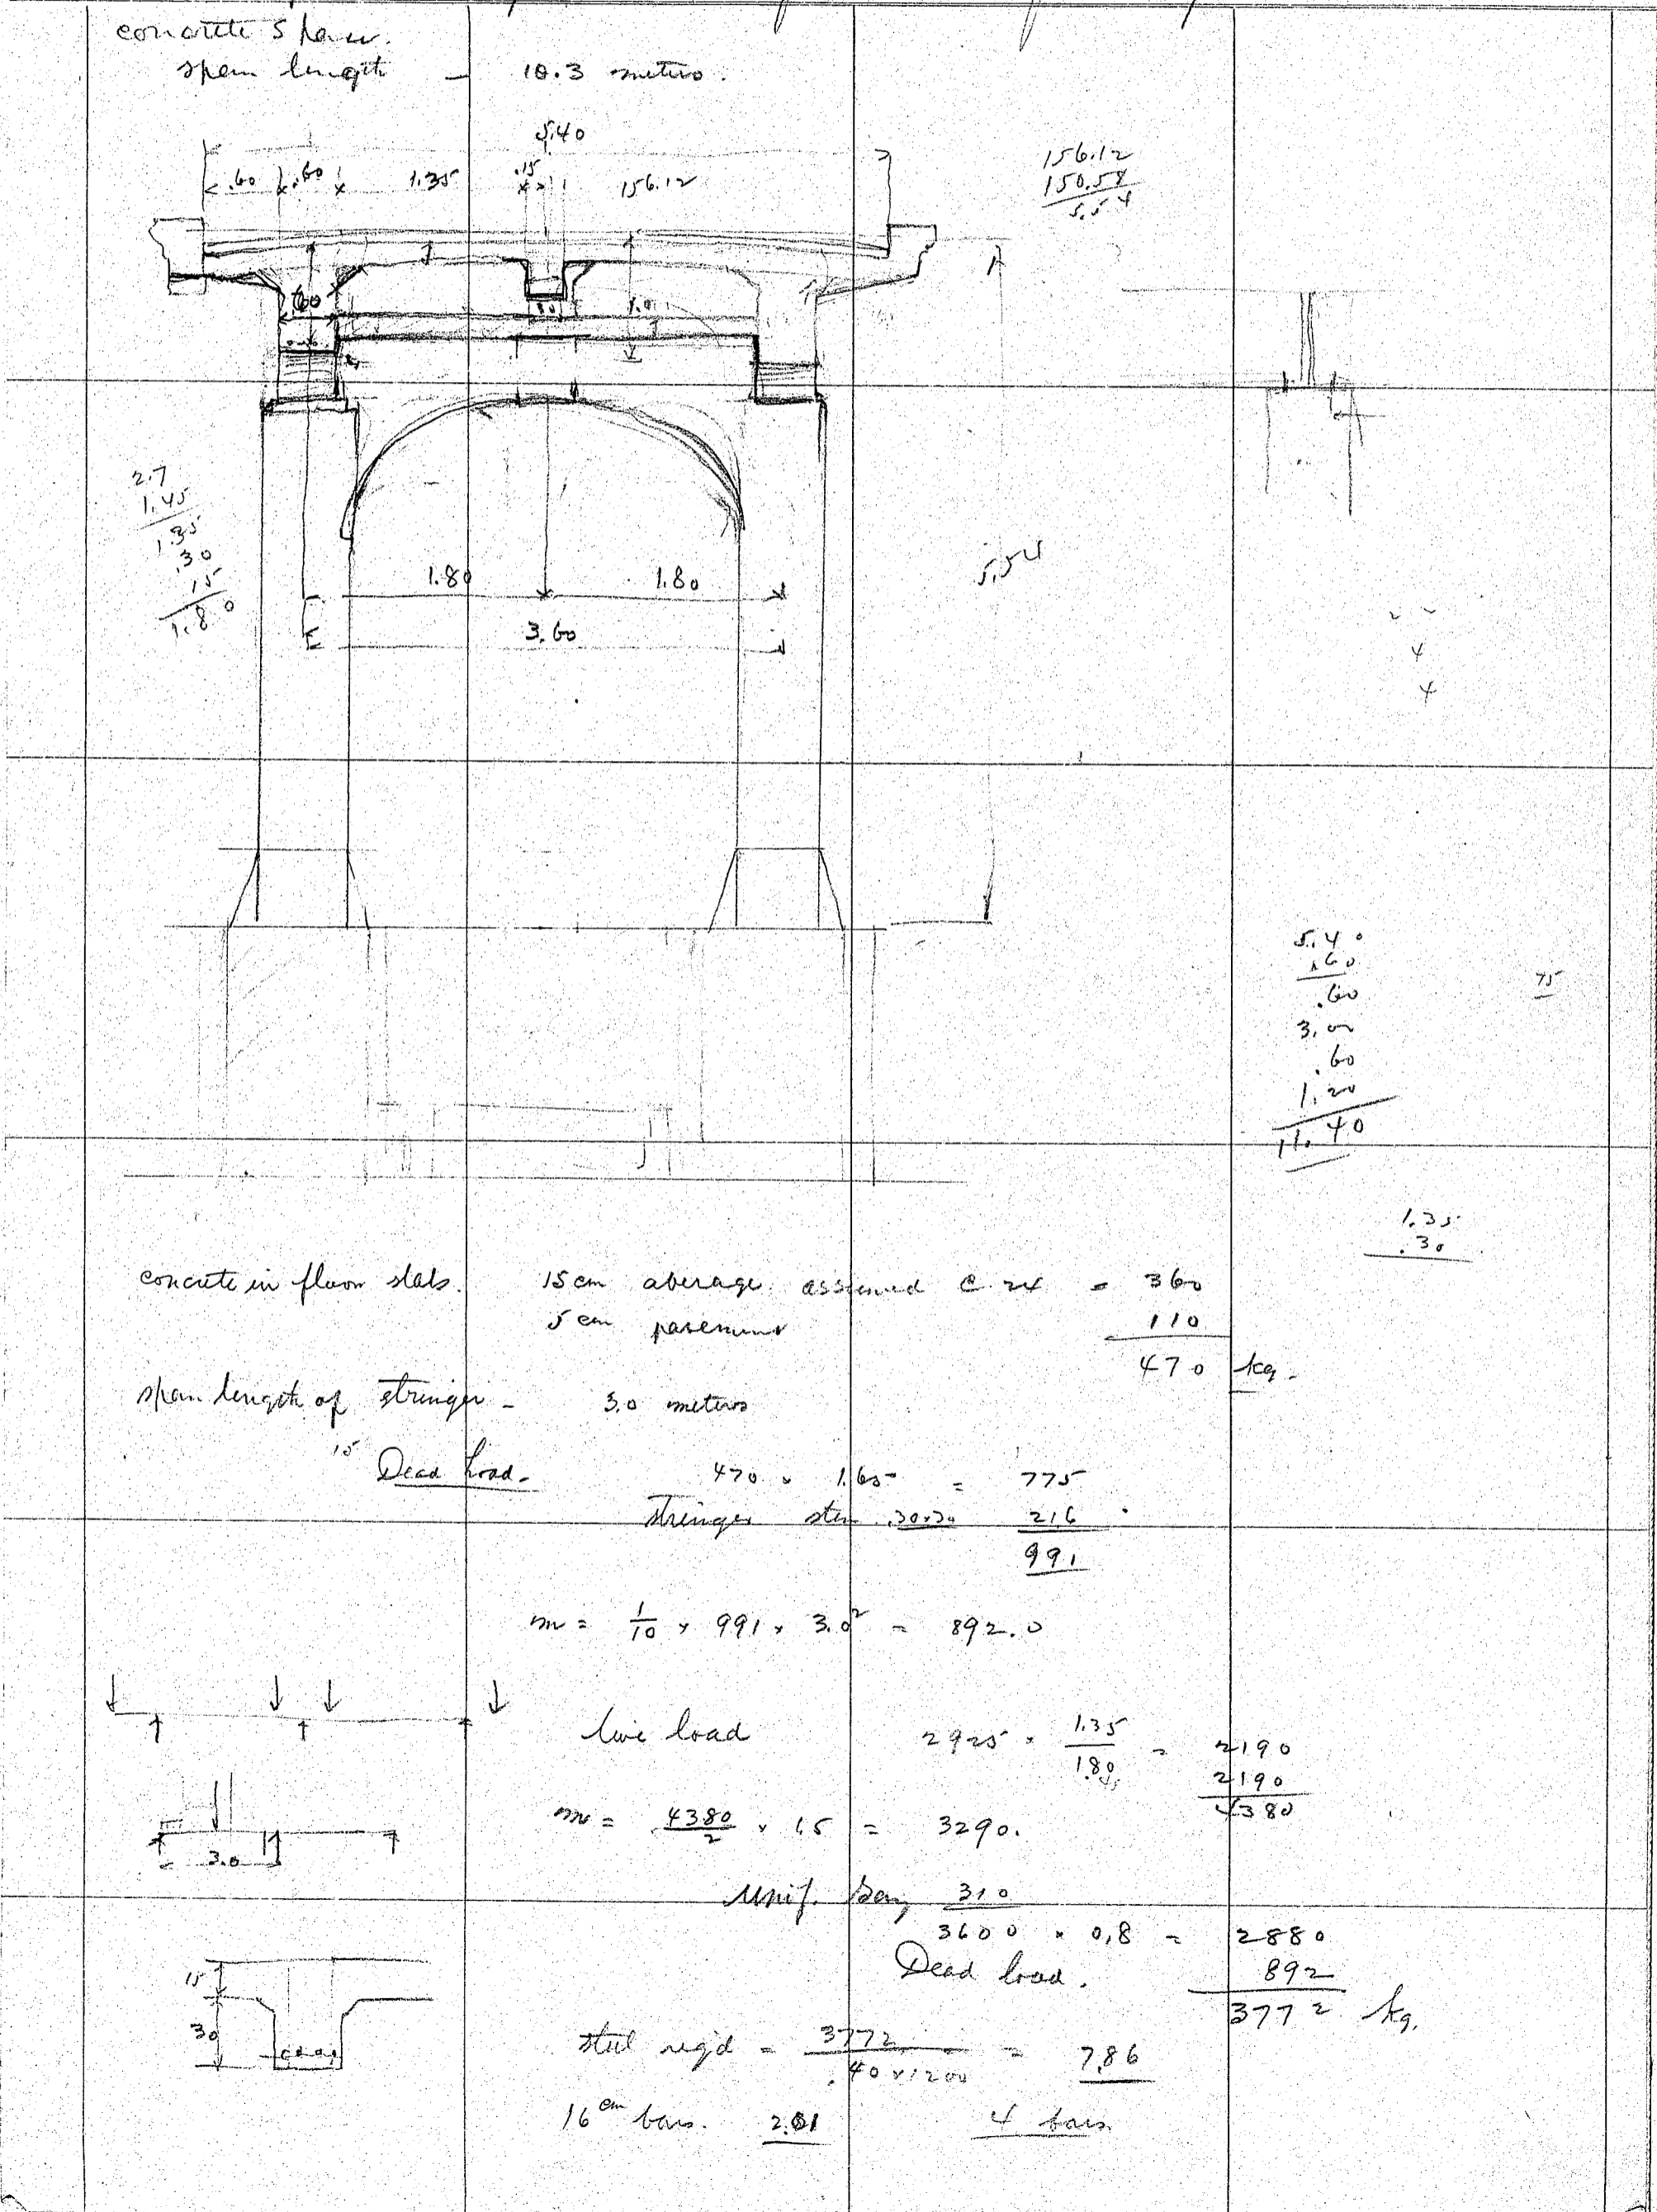 concrete span.
span length – 10.3 meters.
5.40
.60 .60 1.35 .15 156.12
156.12
150.58
5.54
.60
.30
1.0
2.7
1.45
1.35
.30
15
1.80
1.80 1.80
3.60
5.54
5.40
.60
.60
3.00
.60
1.20
11.40
75
1.35
.30
concrete in floor slab. 15 cm average assumed @ 24 = 360
5 cm pavement 110
470 kg.
span length of stringer – 3.0 meters
15
Dead load – 470 × 1.65 = 775
stringer stem .30×30 216
991
m = 1/10 × 991 × 3.0² = 892.0
live load 2925 × 1.35/1.80 = 2190
2190
4380
m = 4380/2 × 1.5 = 3290.
3.0
Unif. 310
3600 × 0,8 = 2880
Dead load. 892
3772 kg.
15
30
steel req'd = 3772/.40×1200 = 7.86
16 cm bars. 2.01 4 bars